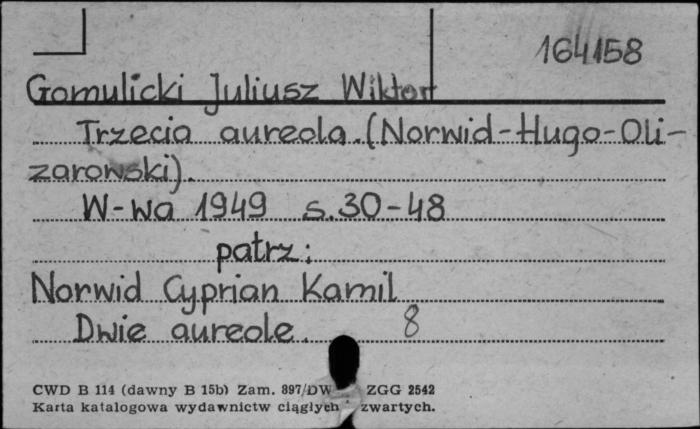 164158
Gomulicki Juliusz Wiktor
Trzecia aureola. (Norwid-Hugo-Oli-
zarowski).
W-wa 1949 s.30-48
patrz:
Norwid Cyprian Kamil
Dwie aureole. 8
CWD B 114 (dawny B 15b) Zam. 897/DW ZGG 2542
Karta katalogowa wydawnictw ciągłych zwartych.